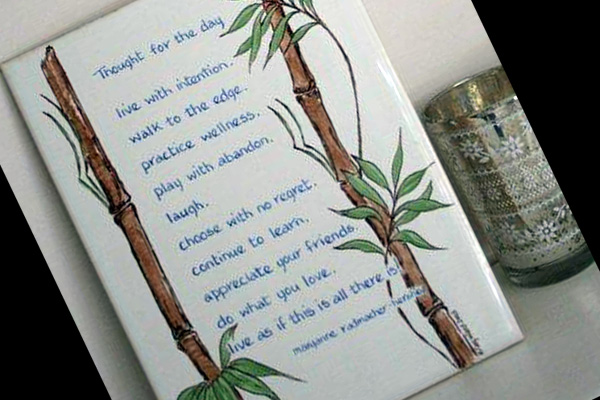 Thought for the day
live with intention.
walk to the edge.
practice wellness.
play with abandon.
laugh.
choose with no regret.
continue to learn.
appreciate your friends.
do what you love.
live as if this is all there is!
maryanne radmacher-hershey